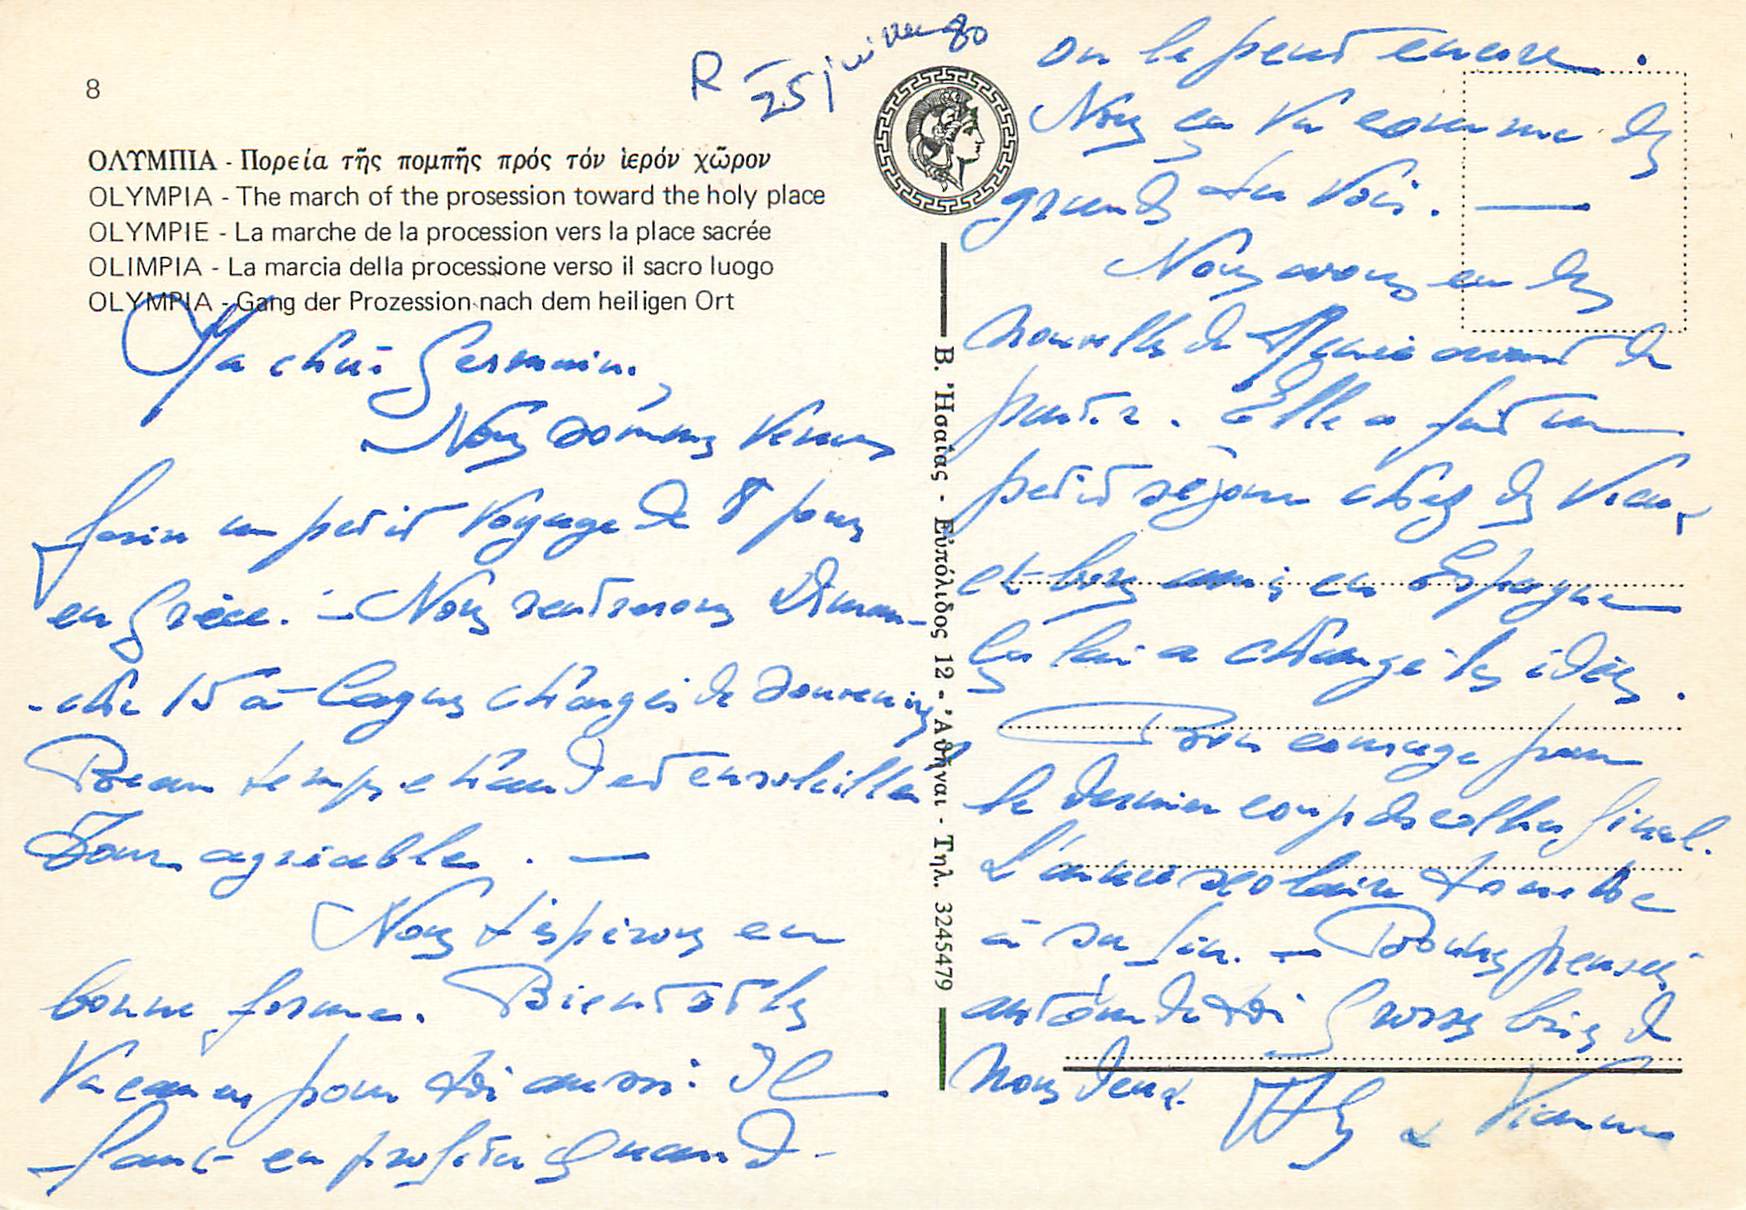 8
ΟΛΥΜΠΙΑ - Πορεία τῆς πομπῆς πρός τόν ἱερόν χῶρον
OLYMPIA - The march of the prosession toward the holy place
OLYMPIE - La marche de la procession vers la place sacrée
OLIMPIA - La marcia della processione verso il sacro luogo
OLYMPIA - Gang der Prozession nach dem heiligen Ort
R 25 juillet 80
Ma chère Germaine,
Nous sommes venus
faire un petit voyage de 8 jours
en Grèce. - Nous rentrerons Diman-
-che 15 à Cagnes chargés de souvenirs
Beau temps chaud et ensoleillé
Tour agréable. —
Nous t'espérons en
bonne forme. Bientôt les
Vacances pour toi aussi : Il
faut en profiter quand
Β. Ἠσαΐας - Εὐπόλιδος 12 - Ἀθῆναι - Τηλ. 3245479
on le peut encore.
Nous en
grands. —
Nous avons eu des
nouvelles de avant de
partir. Elle a fait un
petit séjour chez des vieux
et bons amis en Espagne
Ça lui a changé les idées.
Bon courage pour
le dernier coup de collier final.
L'année scolaire touche
à sa fin. — Bonnes pensées
autour de toi Grosses bises de
nous deux.